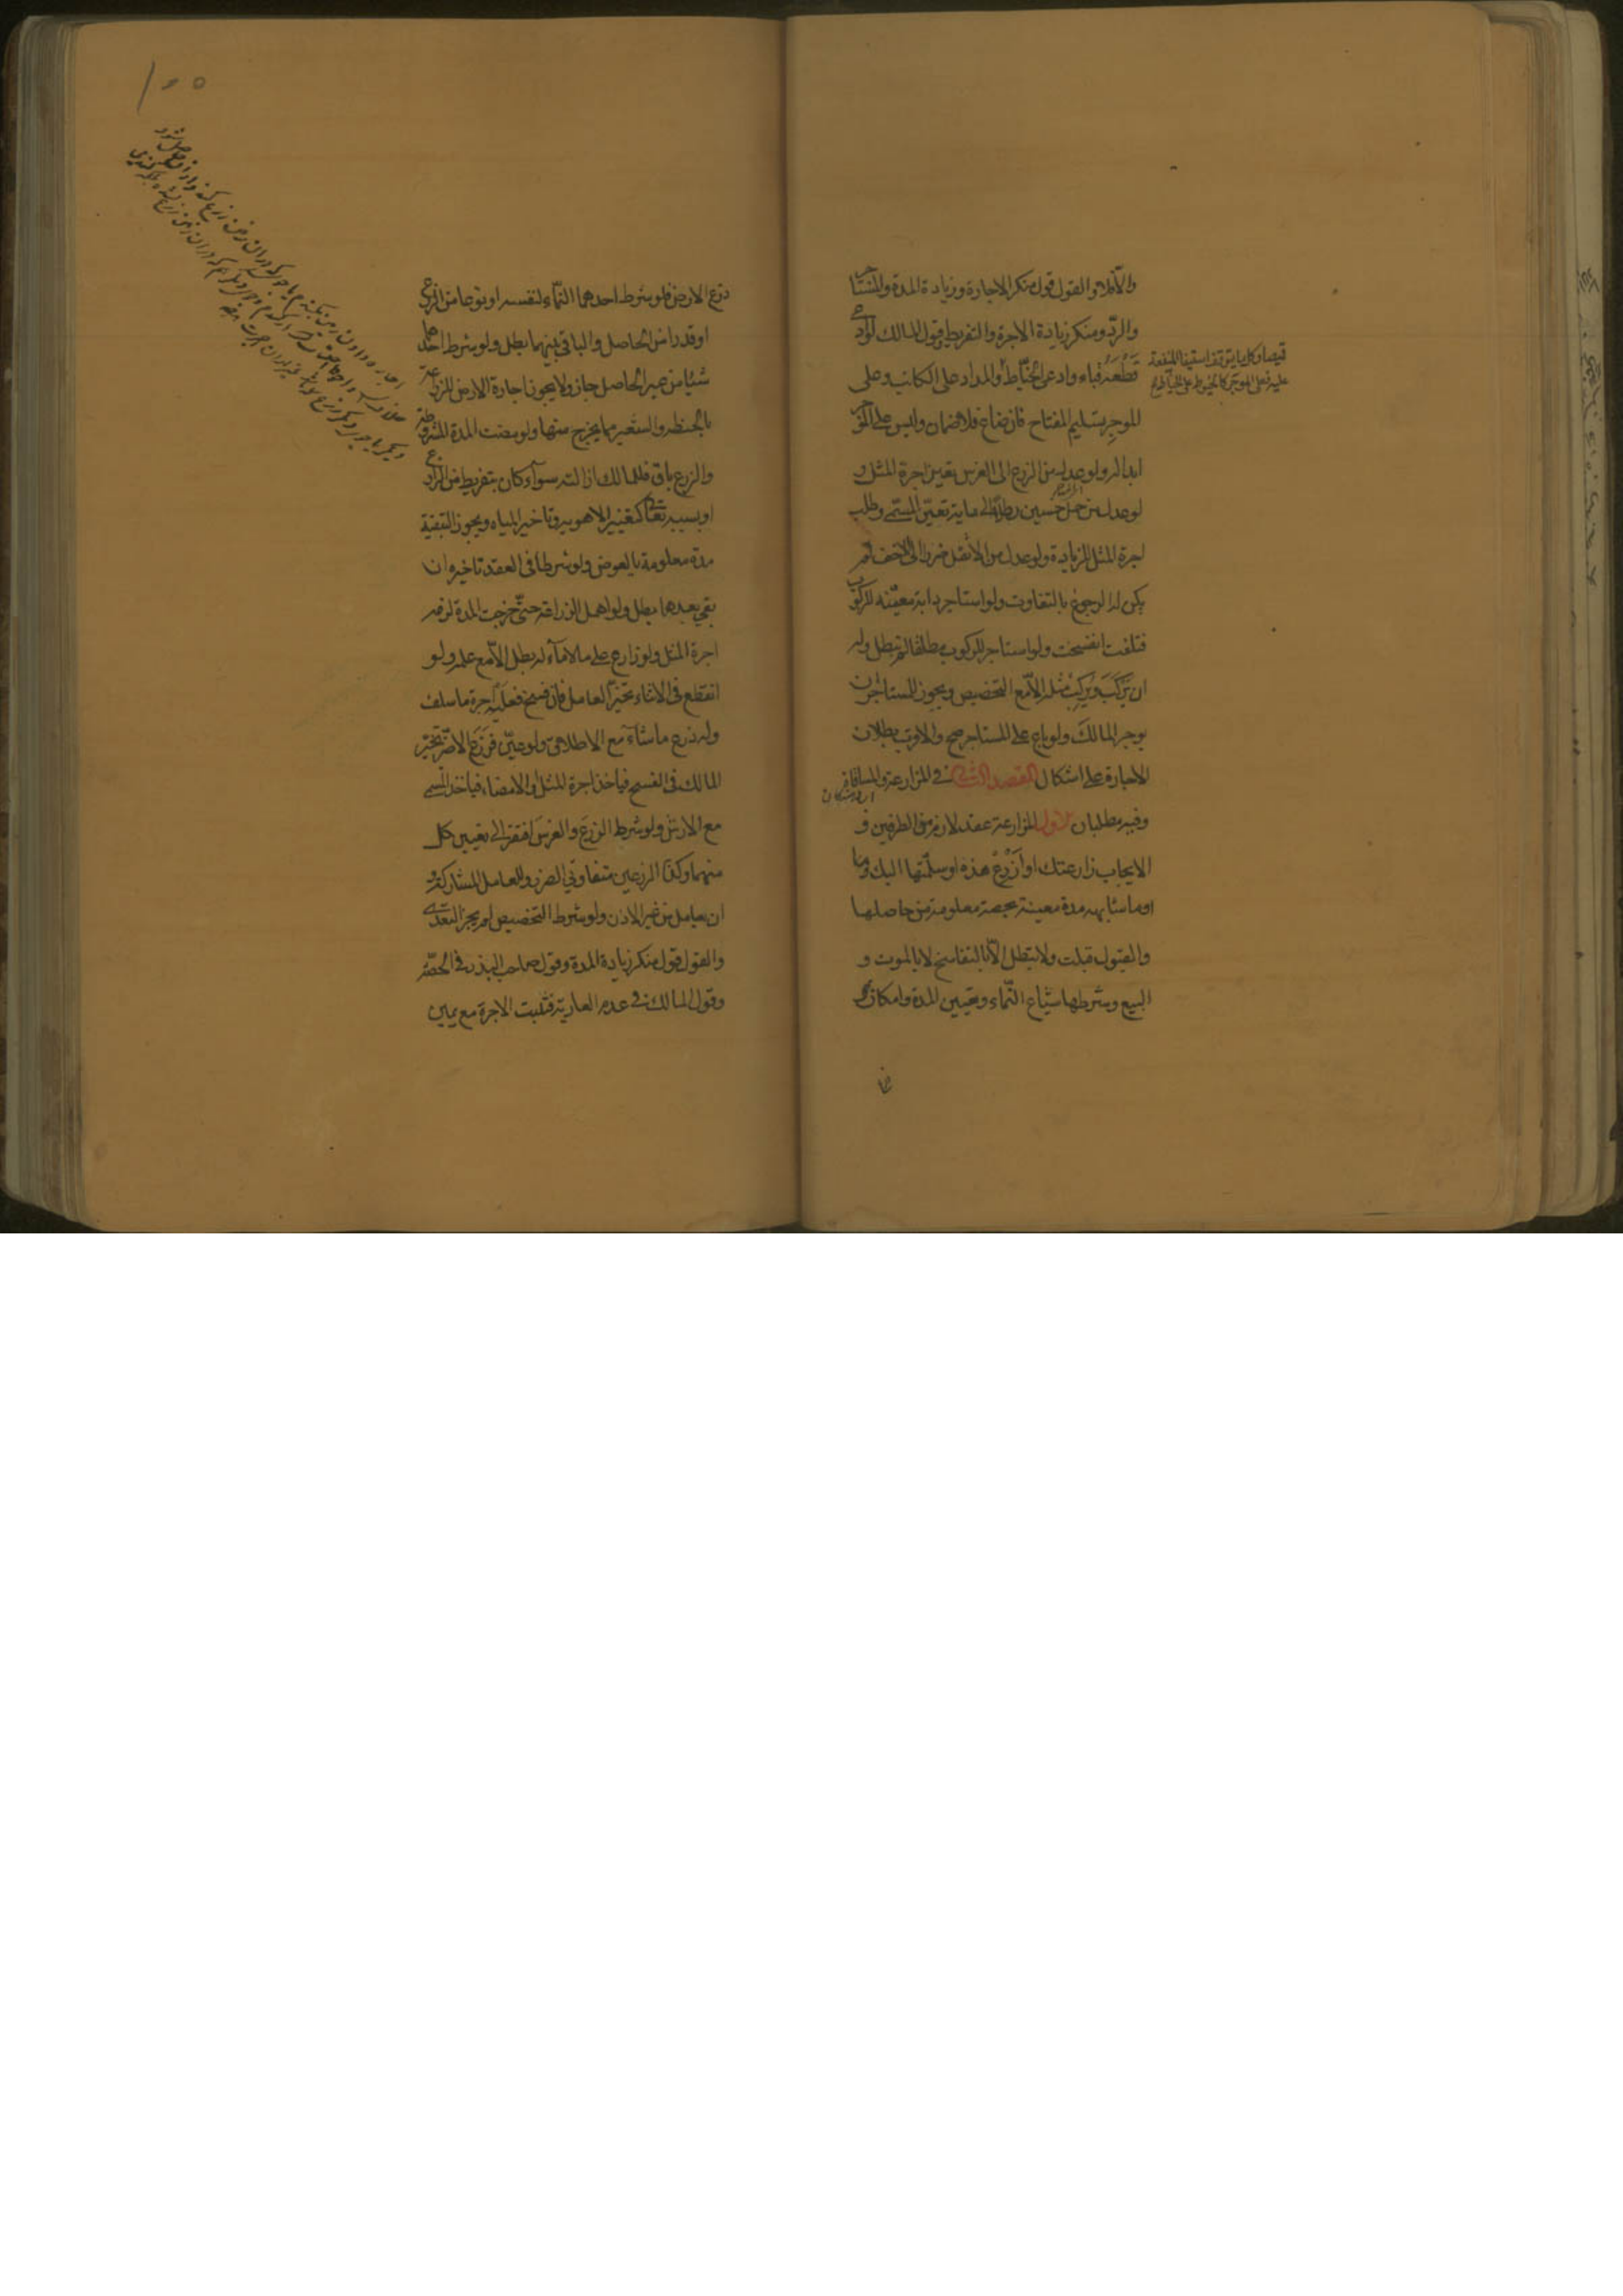 والا فلا والقول قول منكر الاجارة وزيادة المدة والمستاجر
والردّ ومنكر زيادة الاجرة والتفريط وقول المالك لو ادعى
قَطْعَهُ قباء وادعى الخيّاط والمداد على الكاتب وعلى
قميصا وكلما يتوقف استيفاء المنفعة
عليه فعلى الموجر كالخيوط على الخياط
الموجر تسليم المفتاح فان ضاع فلا ضمان وليس على الموجر
ابداله ولو عدل من الزرع الى الغرس تعين اجرة المثل و
لو عدل من حمل خمسين رطلا الى مايه تعيّن المسمّى وطلب
اجرة المثل للزيادة ولو عدل من الاثقل ضررا الى الاخف لم
يكن له الرجوع بالتفاوت ولو استاجر دابة معيّنه للركوب
فتلفت انفسخت ولو استاجر للركوب مطلقا لم تبطل وله
ان يَرْكَبَ ويُركِبَ مثله الّا مع التخصيص ويجوز للمستاجر ان
يوجر المالك ولو باع على المستاجر صح والاقرب بطلان
الاجارة على اشكال المقصد الثاني في المزارعة والمساقاة
وفيه مطلبان الاول المزارعة عقد لازم من الطرفين و
الايجاب زارعتك او ازْرَعْ هذه او سلّمتها اليك وما
اوما شابهه مدة معينة بحصة معلومة من حاصلها
والقبول قبلت ولا تبطل الّا بالتفاسخ لا بالموت و
البيع وشرطها شياع النّماء وتعيين المدة وامكان
١٠٥
زرع الارض فلو شرط احدهما النّماء لنفسه او نوعا من الزرع
او قدرا من الحاصل والباقي بينهما بطل ولو شرط احدهما
شيئا من غير الحاصل جاز ولا يجوز اجارة الارض للزراعة
بالحنطه والشعير مما يخرج منها ولو مضت المدة المشروطة
والزرع باق فللمالك ازالته سوآء كان بتفريط من الزارع
او بسببه تعالى كتغيير الاهويه وتاخير المياه ويجوز التبقية
مدة معلومة بالعوض ولو شرطا في العقد تاخيره ان
بقي بعدها بطل ولو اهمل الزراعة حتّى خرجت المدة لزمه
اجرة المثل ولو زارع على ما لا مآء له بطل الّا مع علمه ولو
انقطع في الاثناء تخيّر العامل فان فسخ فعليه اجرة ما سلف
وله زرع ما شآء مع الاطلاق ولو عيّن فزَرَع الاضرّ تخيّر
المالك في الفسخ فياخذ اجرة المثل والامضاء فياخذ المسمى
مع الارش ولو شرط الزرعَ والغرسَ افتقر الى تعيين كل
منهما وكذا الزرعين متفاوتي الضرر وللعامل المشاركة و
ان يعامل من غير الاذن ولو شرط التخصيص لم يجز التعدى
والقول قول منكر زيادة المدة وقول صاحب البذر في الحصّه
وقول المالك في عدم العارية فتثبت الاجرة مع يمين